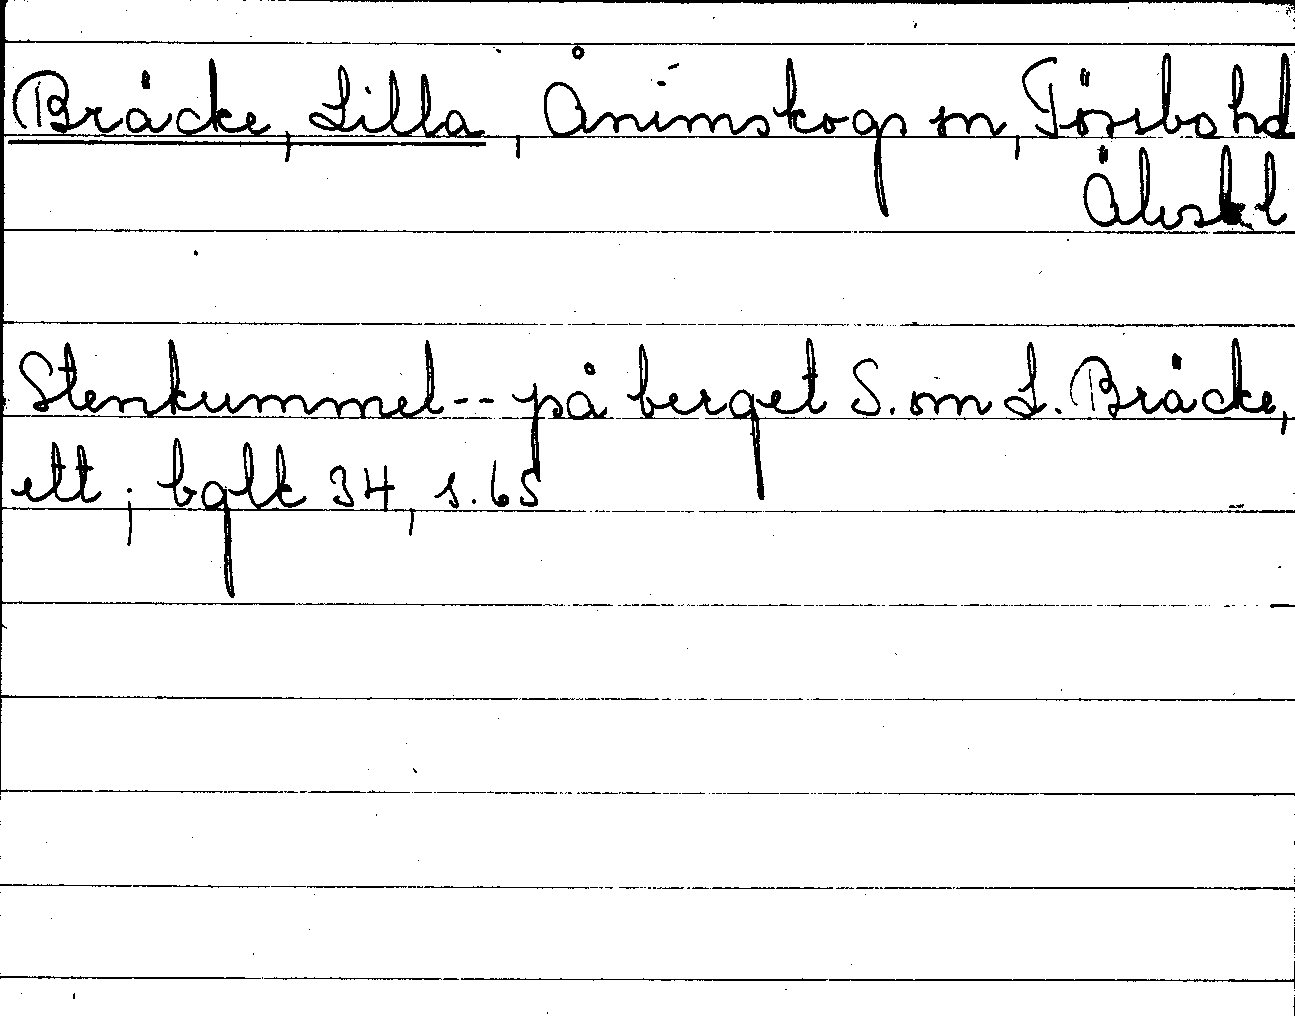 Bräcke, Lilla, Ånimskogs sn, Tössbo hd
Älvsb l
Stenkummel -- på berget S. om L. Bräcke,
ett; bglk 34, s. 65